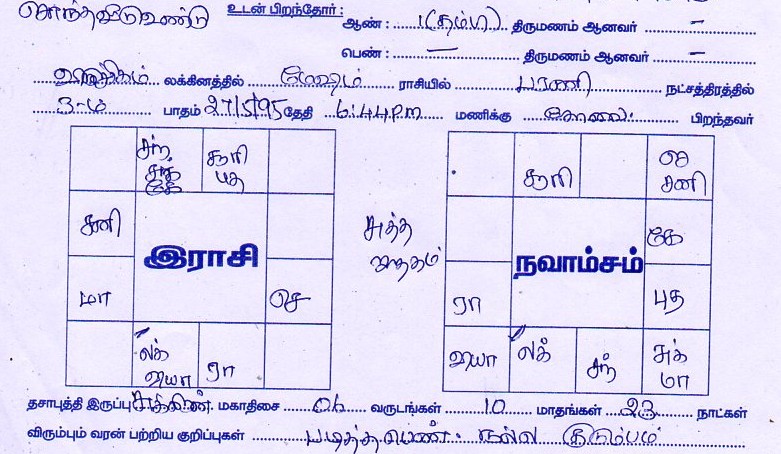 சொந்தவீடு உண்டு
உடன் பிறந்தோர் :
ஆண் : 1(தம்பி) திருமணம் ஆனவர் –
பெண் : – திருமணம் ஆனவர் –
லக்கினத்தில் மேஷம் ராசியில் பரணி நட்சத்திரத்தில்
3-ம் பாதம் 27/5/95 தேதி 6:44 P.m மணிக்கு கோவை பிறந்தவர்
சந் சுக் கே
சூரி புத
சனி
மா
செ
லக் வியா
ரா
இராசி
சுத்த ஜாதகம்
சூரி
செ சனி
கே
புத
ரா
வியா
லக்
சந்
சுக் மா
நவாம்சம்
தசாபுத்தி இருப்பு சுக்கிரன் மகாதிசை 06 வருடங்கள் 10 மாதங்கள் 23 நாட்கள்
விரும்பும் வரன் பற்றிய குறிப்புகள் படித்த பெண். நல்ல குடும்பம்